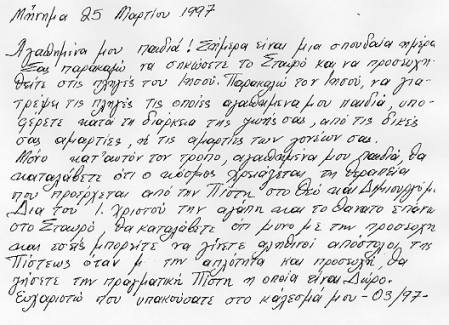 Μήνημα 25 Μαρτίου 1997
Αγαπημένα μου παιδιά! Σήμερα είναι μια σπουδαία ημέρα
Σας παρακαλώ να σηκώσετε το Σταυρό και να προσευχη-
θείτε στις πληγές του Ιησού. Παρακαλώ τον Ιησού, να για-
τρέψει τις πληγές τις οποίες αγαπημένα μου παιδιά, υπο-
φέρετε κατά τη διάρκεια της ζωής σας, από τις δικές
σας αμαρτίες, ή τις αμαρτίες των γονέων σας.
Μόνο κατ'αυτόν τον τρόπο, αγαπημένα μου παιδιά, θα
καταλάβετε ότι ο κόσμος χρειάζεται τη θεραπεία
που προέρχεται από την Πίστη στο Θεό και Δημιουργό μ.
Δια του Ι. Χριστού την αγάπη και το θάνατο επάνω
στο Σταυρό, θα καταλάβετε ότι μόνο με την προσευχή
και εσείς μπορείτε να γίνετε αληθινοί απόστολοι της
Πίστεως όταν μ την απλότητα και προσευχή, θα
ζήσετε την πραγματική Πίστη η οποία είναι Δώρο.
Ευχαριστώ που υπακούσατε στο κάλεσμά μου - 03/97-